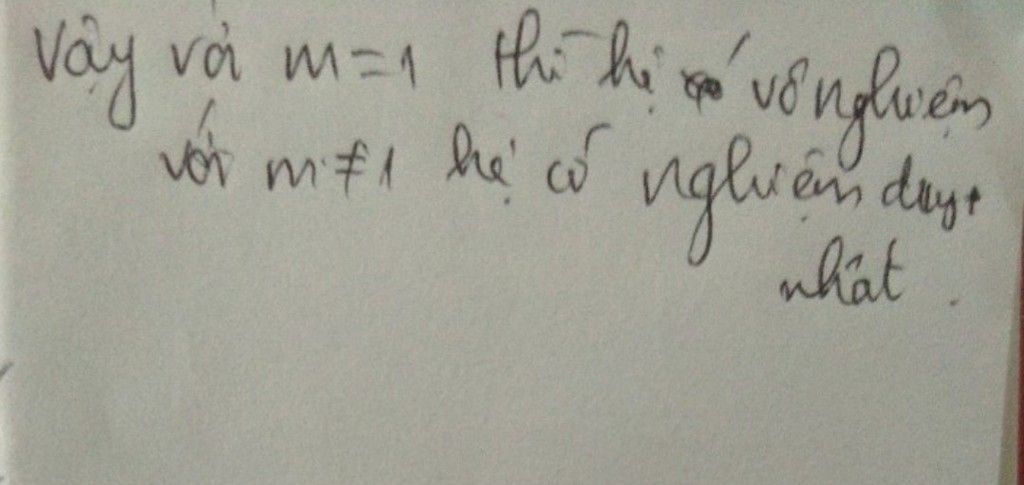 Vậy với m = 1 thì hệ vô nghiệm
với m ≠ 1 hệ có nghiệm duy
nhất.